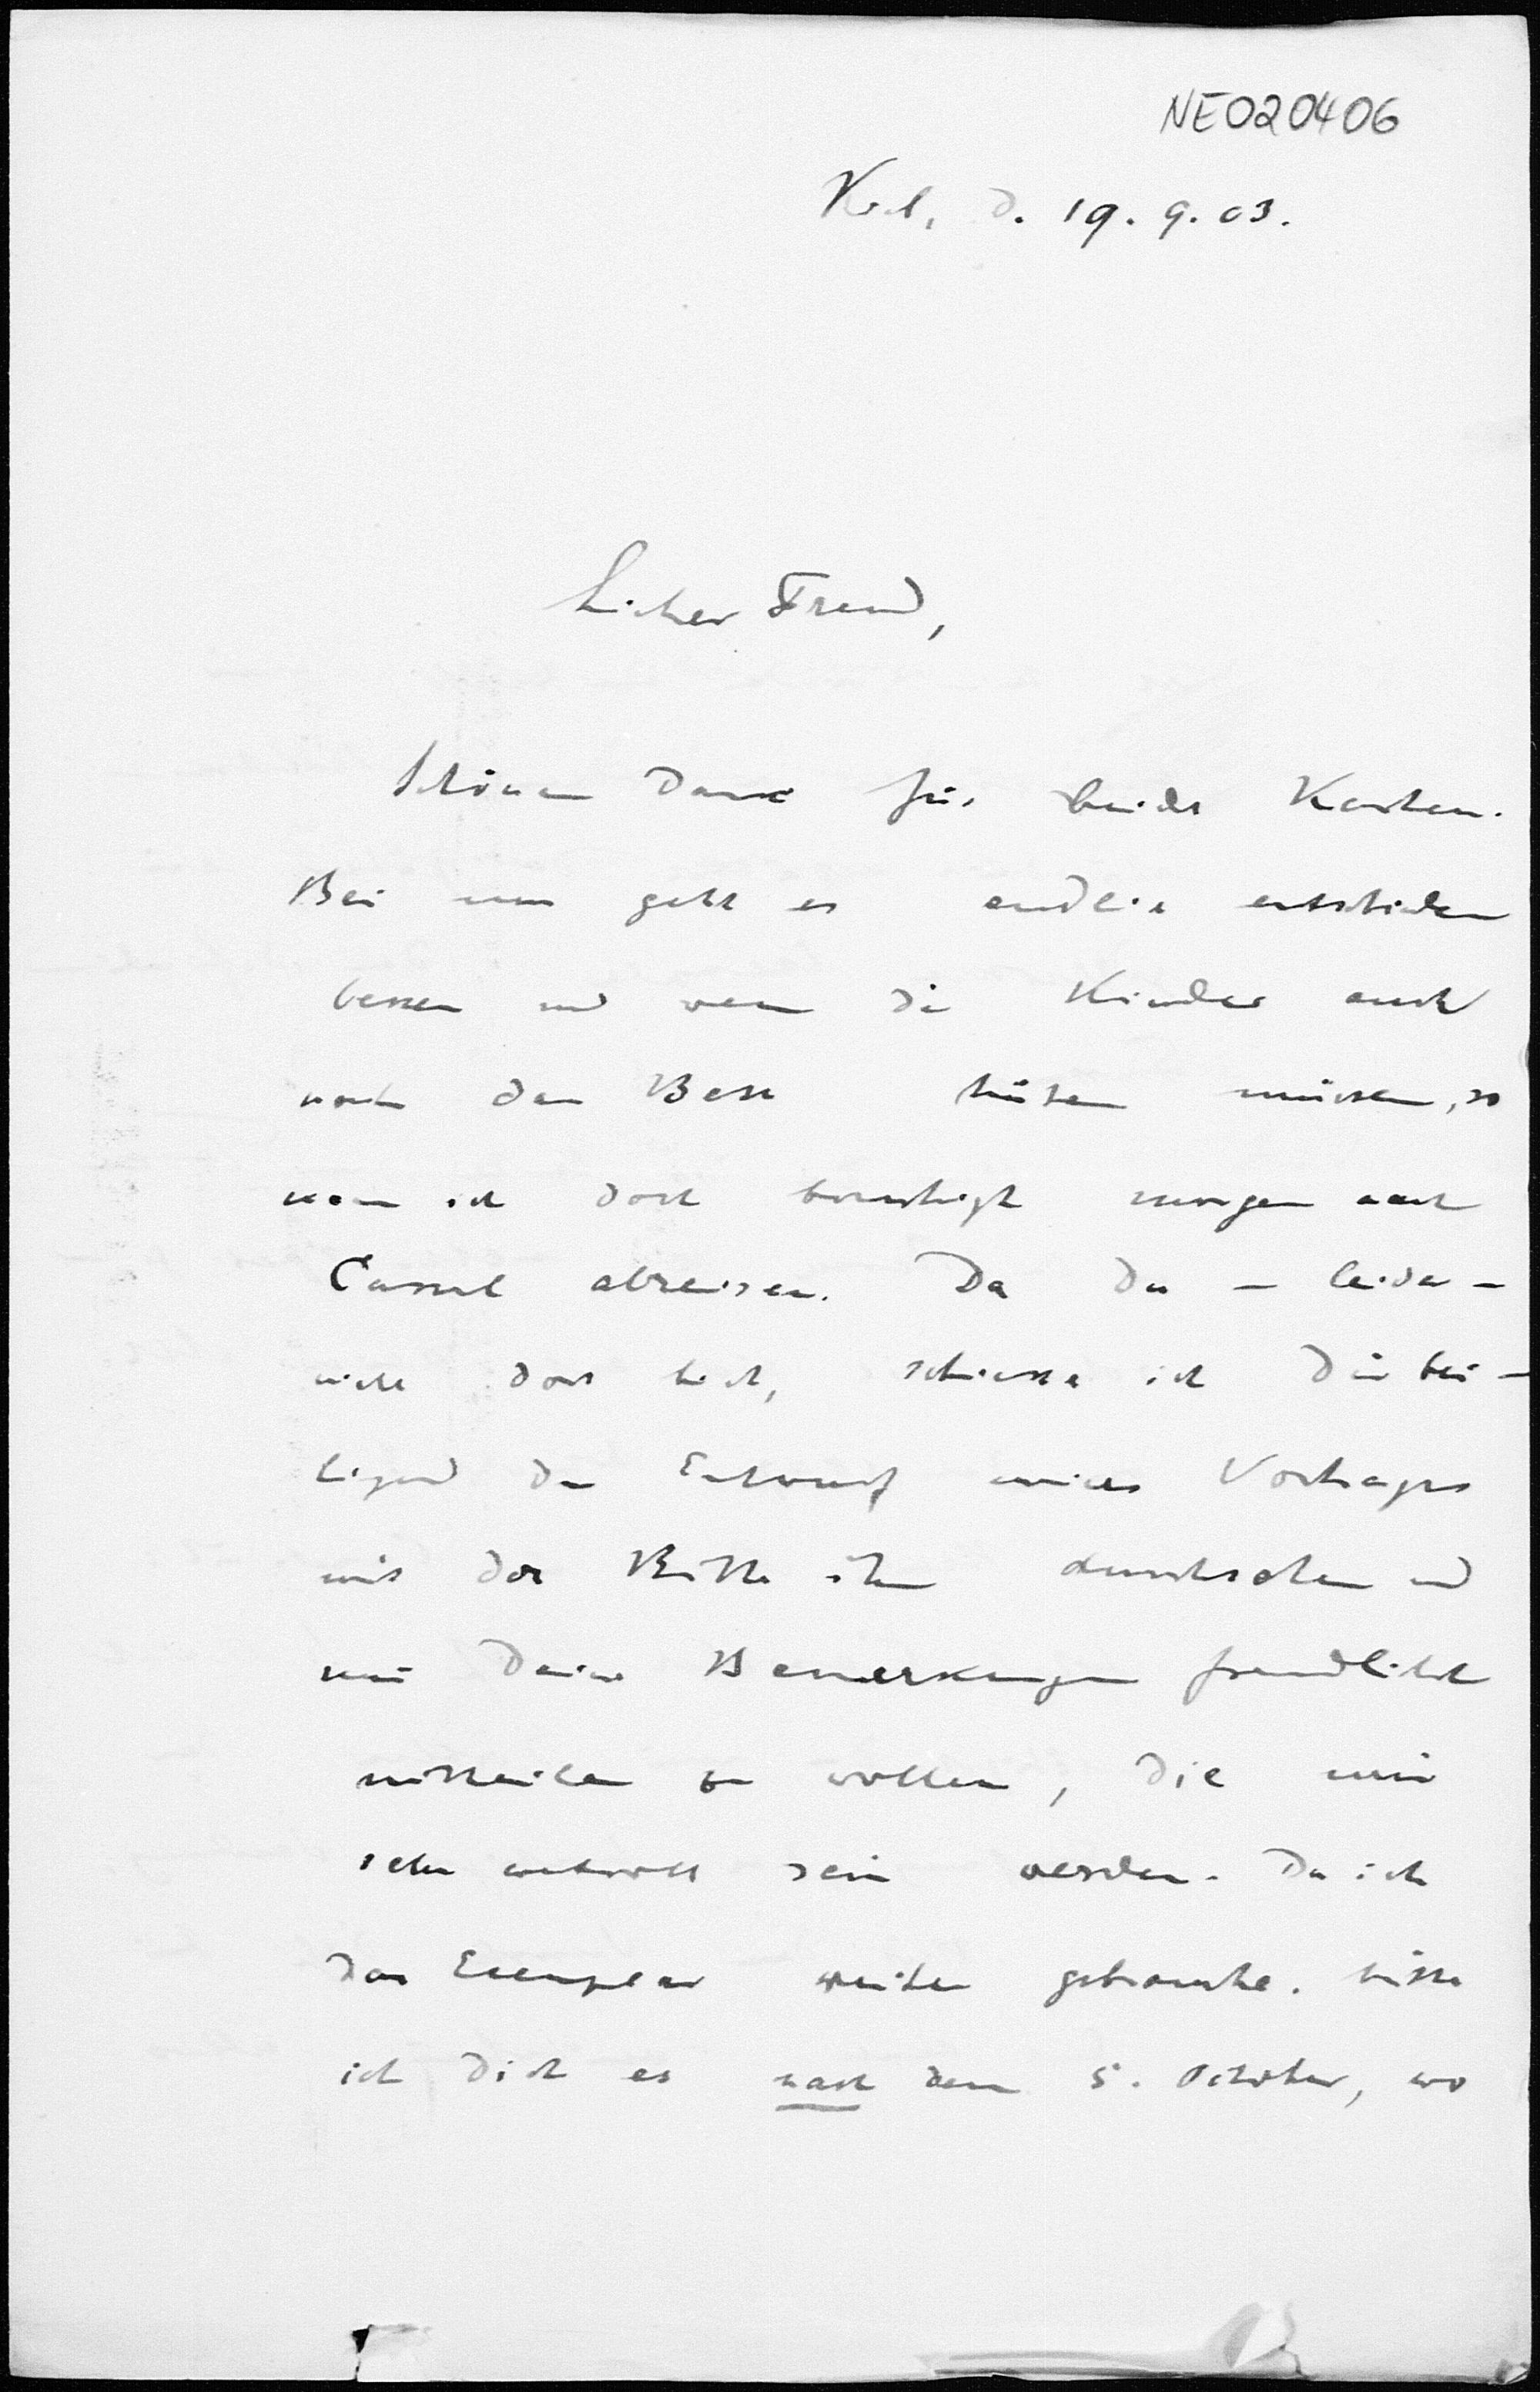 NE020406
Kiel, d. 19. 9. 03.
Lieber Freund,
Schönen Dank für beide Karten.
Bei uns geht es endlich entschieden
besser und wenn die Kinder auch
noch das Bett hüten müssen, so
kann ich doch beruhigt morgen nach
Cassel abreisen. Da Du – leider –
nicht dort bist, schicke ich Dir bei-
liegend den Entwurf meines Vortrages
mit der Bitte ihn durchsehen und
mir Deine Bemerkungen freundlichst
mittheilen zu wollen, die mir
sehr wertvoll sein werden. Da ich
das Exemplar weiter gebrauche, bitte
ich Dich es nach dem 5. October, wo